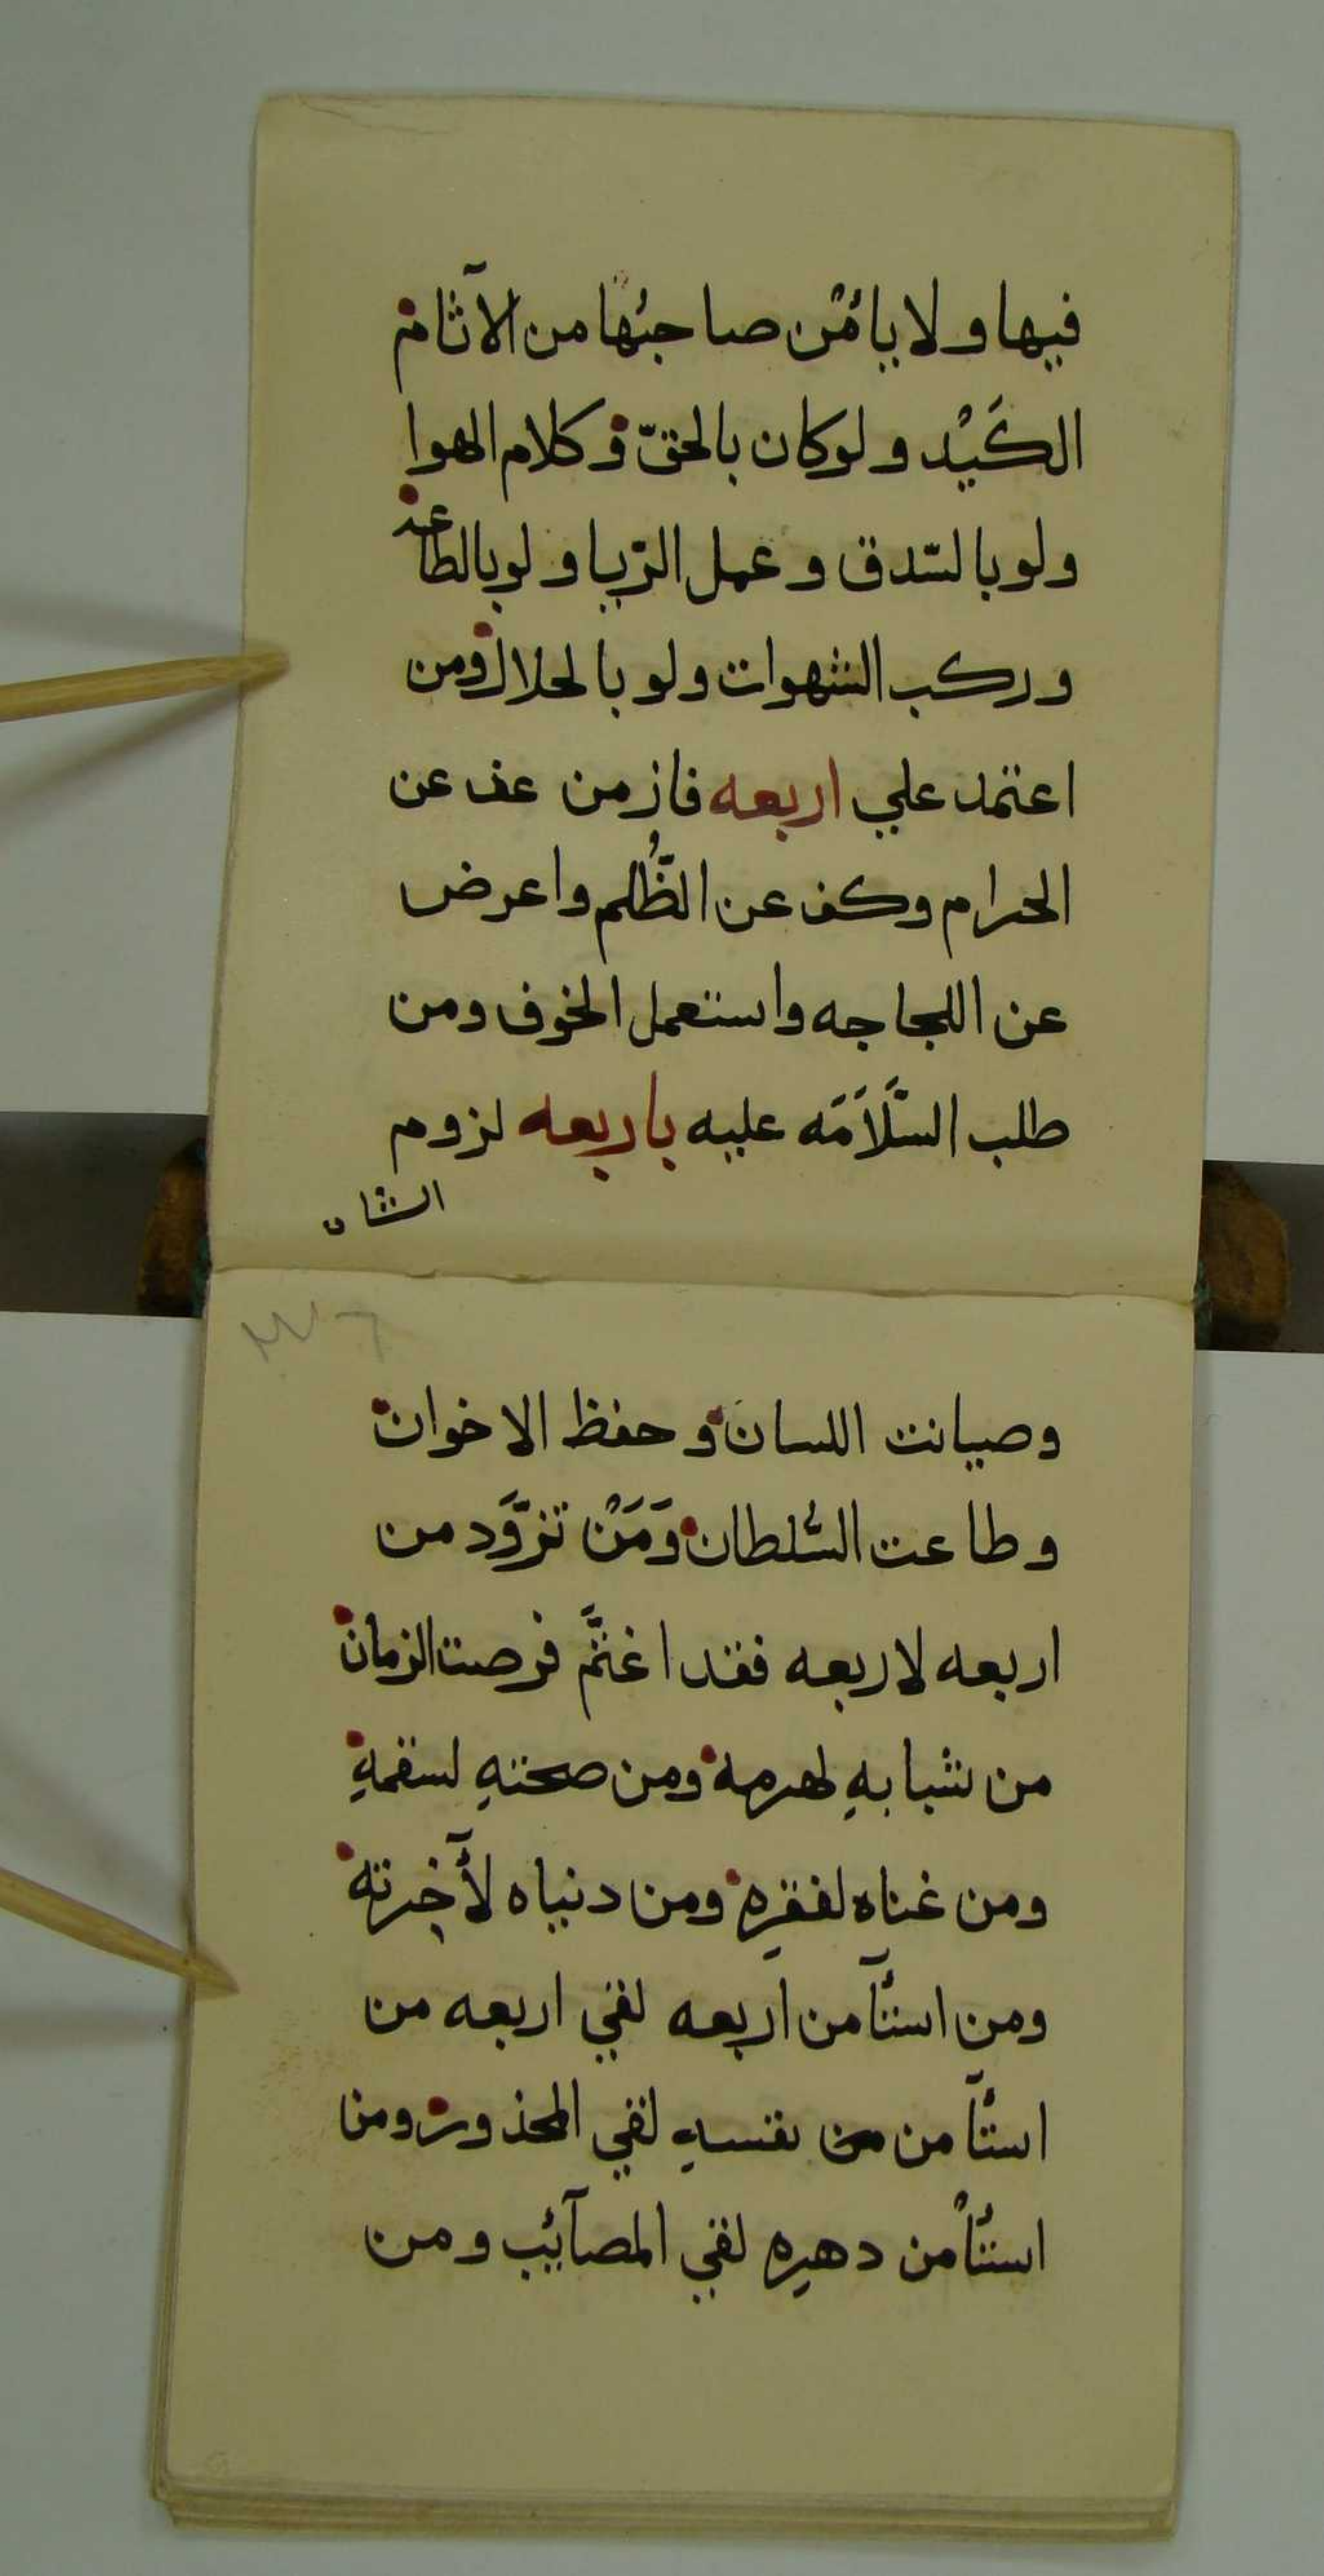 فيها ولا يأمُن صاحبُها من الآثام
الكَيْد ولو كان بالحقّ وكلام الهوا
ولو بالسّدق وعمل الرّيا ولو بالطاعه
وركب الشهوات ولو بالحلال ومن
اعتمد علي اربعه فاز من عف عن
الحرام وكف عن الظُّلم واعرض
عن اللجاجه واستعمل الخوف ومن
طلب السَّلَامَه عليه باربعه لزوم
الشان
وصيانت اللسان وحفظ الاخوان
وطاعت السُّلطان وَمَنْ تزوَّد من
اربعه لاربعه فقد اغتنَّم فرصت الزمان
من شبابهِ لهرمه ومن صحتهِ لسقمهِ
ومن غناه لفقرهِ ومن دنياه لأخِرته
ومن استأمن اربعه لقي اربعه من
استأمن من نفسهِ لقي المحذور ومن
استأمن دهرِه لقي المصآئب ومن